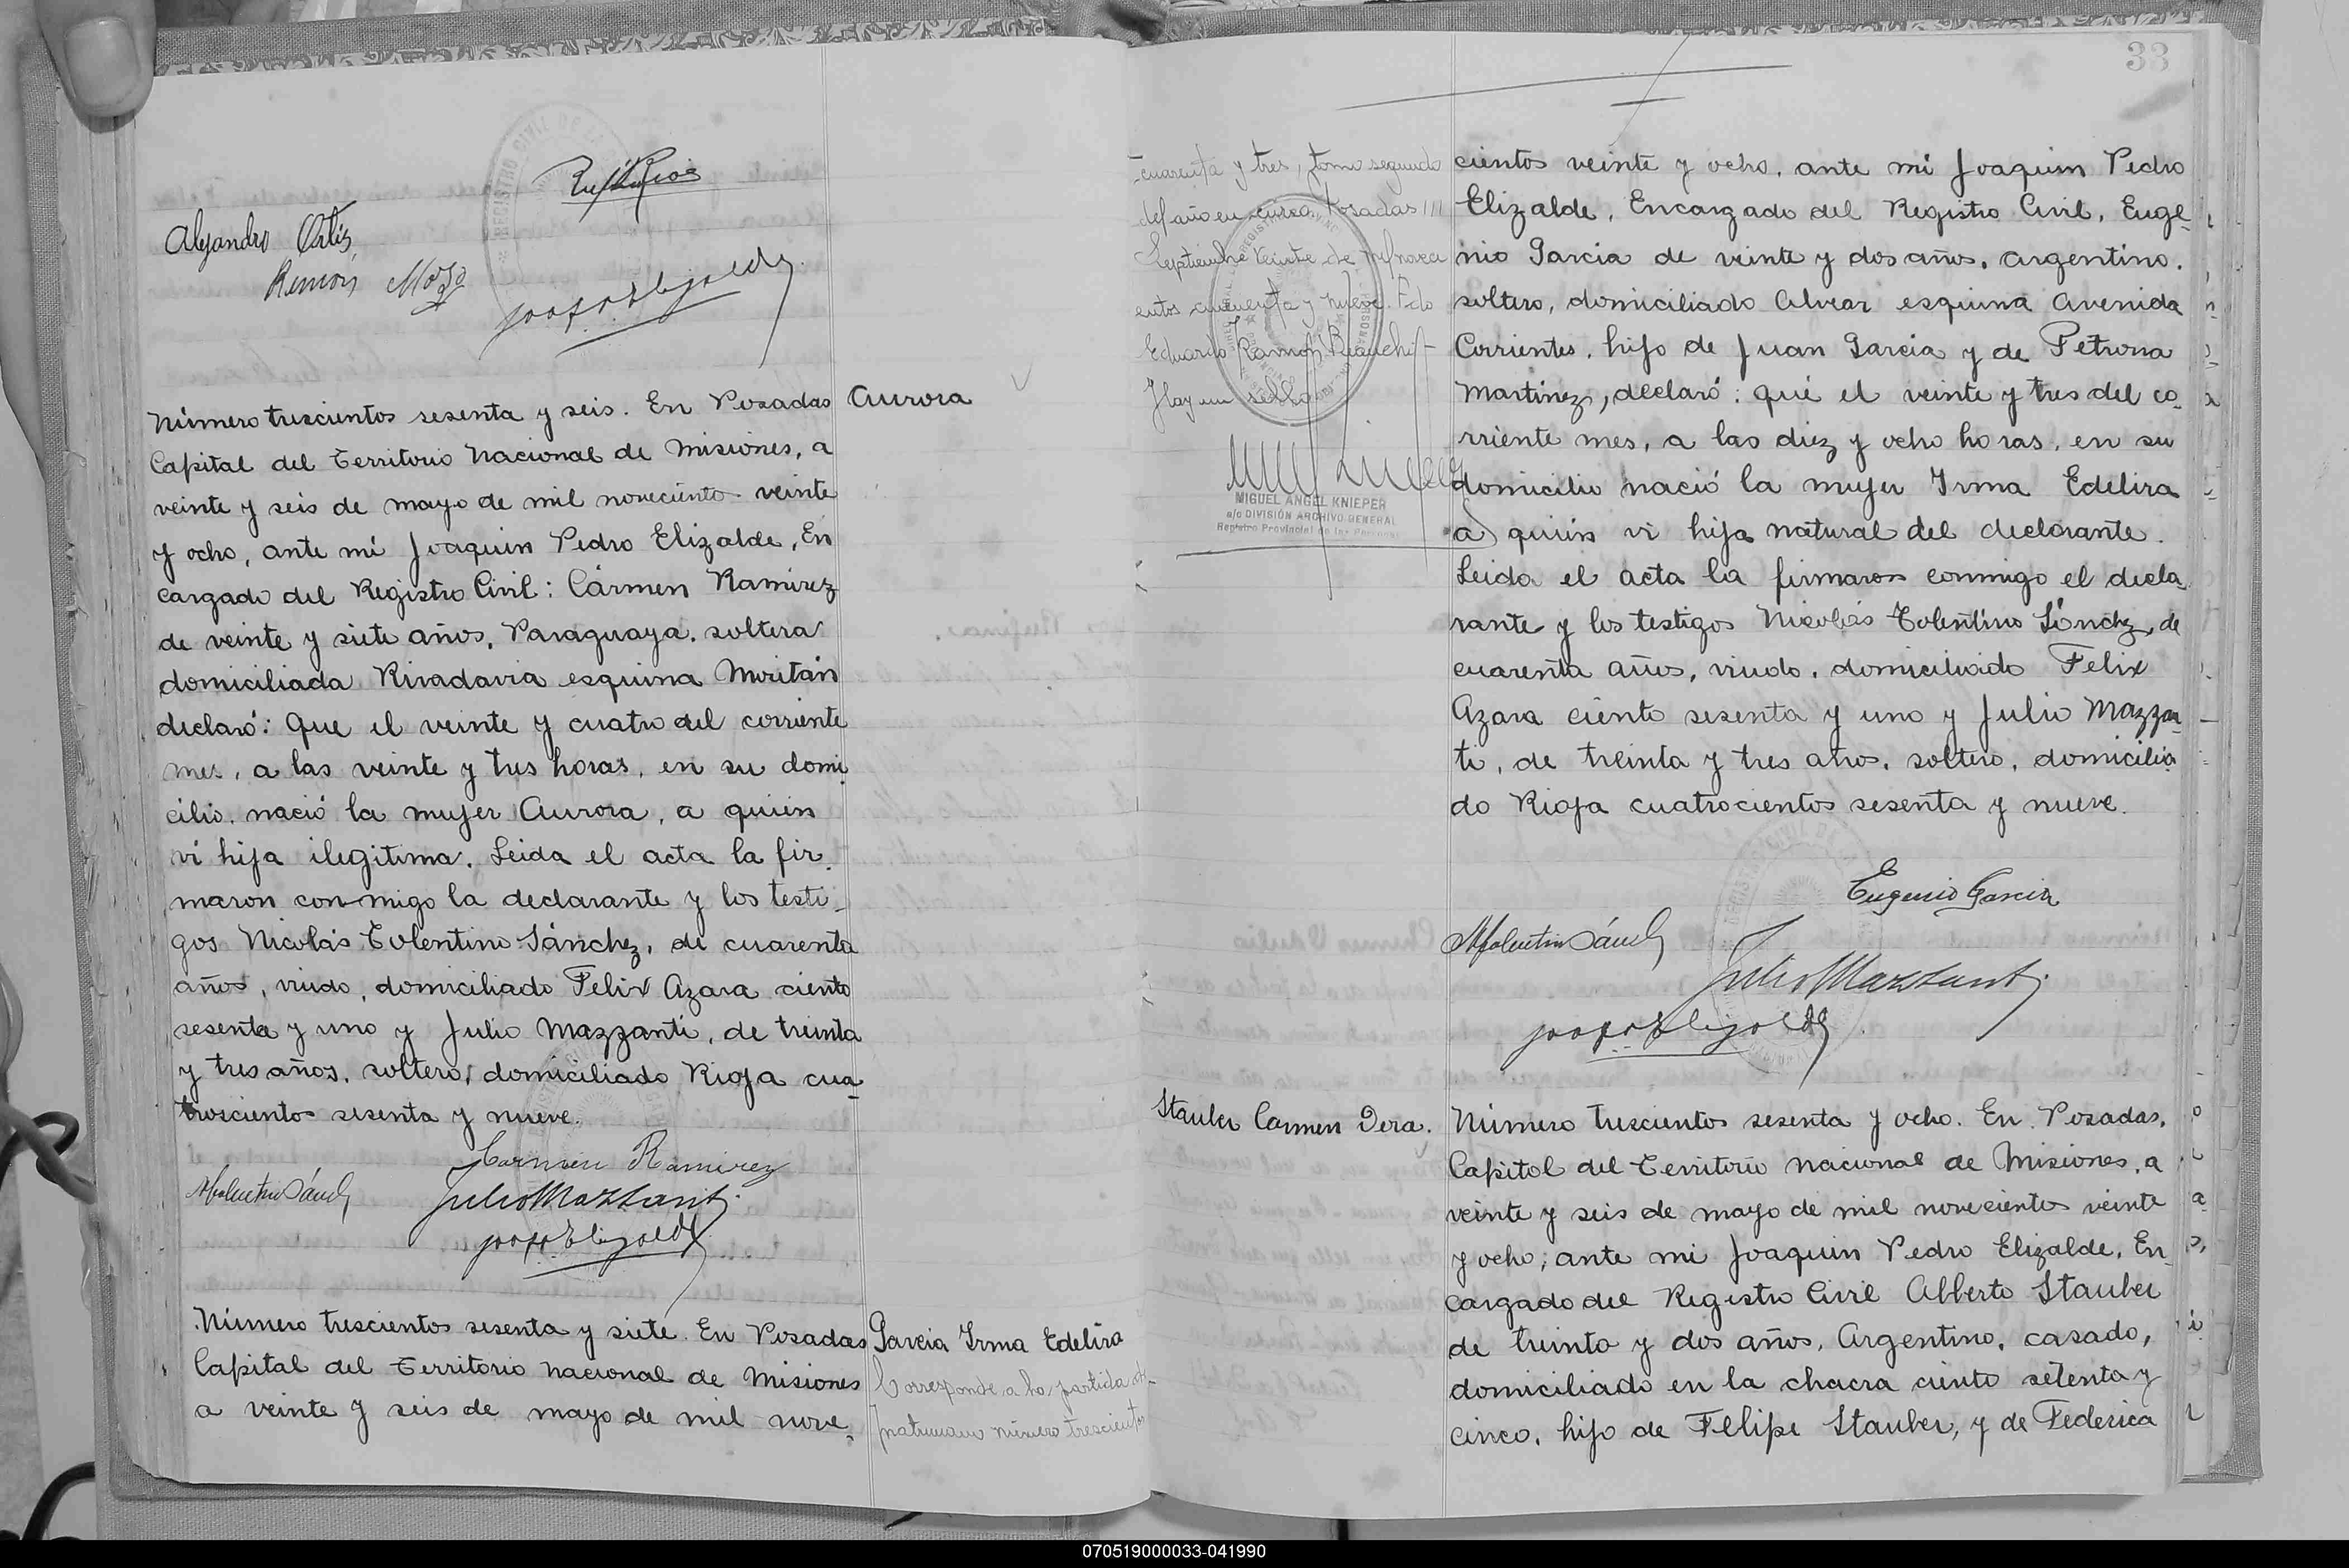 Alejandro Ortiz
Ramón Mozo
Número trescientos sesenta y seis. En Posadas
Aurora
Capital del Territorio Nacional de Misiones, a
veinte y seis de mayo de mil novecientos veinte
y ocho, ante mi Joaquin Pedro Elizalde, En
cargado del Registro Civil: Cármen Ramirez
de veinte y siete años, Paraguaya, soltera
domiciliada Rivadavia esquina
declaró: Que el veinte y cuatro del corriente
mes, a las veinte y tres horas, en su domi
cilio, nació la mujer Aurora, a quien
vi hija ilegitima. Leida el acta la fir
maron conmigo la declarante y los testi_
gos Nicolás Tolentino Sánchez, de cuarenta
años, viudo, domiciliado Felix Azara ciento
sesenta y uno y Julio Mazzanti, de treinta
y tres años, soltero, domiciliado Rioja cua_
troscientos sesenta y nueve.
Carmen Ramirez
NTolentin Sánch
Julio Mazzanti
Número trescientos sesenta y siete. En Posadas
Garcia Irma Edelira
Capital del Territorio nacional de Misiones
Corresponde a la partida
a veinte y seis de mayo de mil nove_
número trescientos
33
cuarenta y tres, tomo segundo
del año en curso. Posadas
Septiembre veinte de mil noveci
entos cincuenta y nueve. Fdo
Eduardo Ramón Bianchi
Hay un sello
MIGUEL ANGEL KNIEPER
a/c DIVISIÓN ARCHIVO GENERAL
Registro Provincial de las Personas
cientos veinte y ocho, ante mi Joaquin Pedro
Elizalde, Encargado del Registro Civil, Euge_
nio Garcia de veinte y dos años, argentino,
soltero, domiciliado Alvear esquina avenida
Corrientes, hijo de Juan Garcia y de Petrona
Martinez, declaró: que el veinte y tres del co_
rriente mes, a las diez y ocho horas, en su
domicilio nació la mujer Irma Edelira
a quien vi hija natural del declarante.
Leida el acta la firmaron conmigo el decla
rante y los testigos Nicolás Tolentino Sánchez, de
cuarenta años, viudo, domiciliado Felix
Azara ciento sesenta y uno y Julio Mazzan_
ti, de treinta y tres años, soltero, domicilia
do Rioja cuatrocientos sesenta y nueve.
Eugenio Garcia
NTolentin Sánch
Julio Mazzanti
Stauber Carmen Dera.
Número trescientos sesenta y ocho. En Posadas,
Capital del Territorio nacional de Misiones, a
veinte y seis de mayo de mil novecientos veinte
y ocho; ante mi Joaquin Pedro Elizalde, En_
cargado del Registro Civil Alberto Stauber
de treinta y dos años, Argentino, casado,
domiciliado en la chacra ciento setenta y
cinco, hijo de Felipe Stauber, y de Federica
070519000033-041990